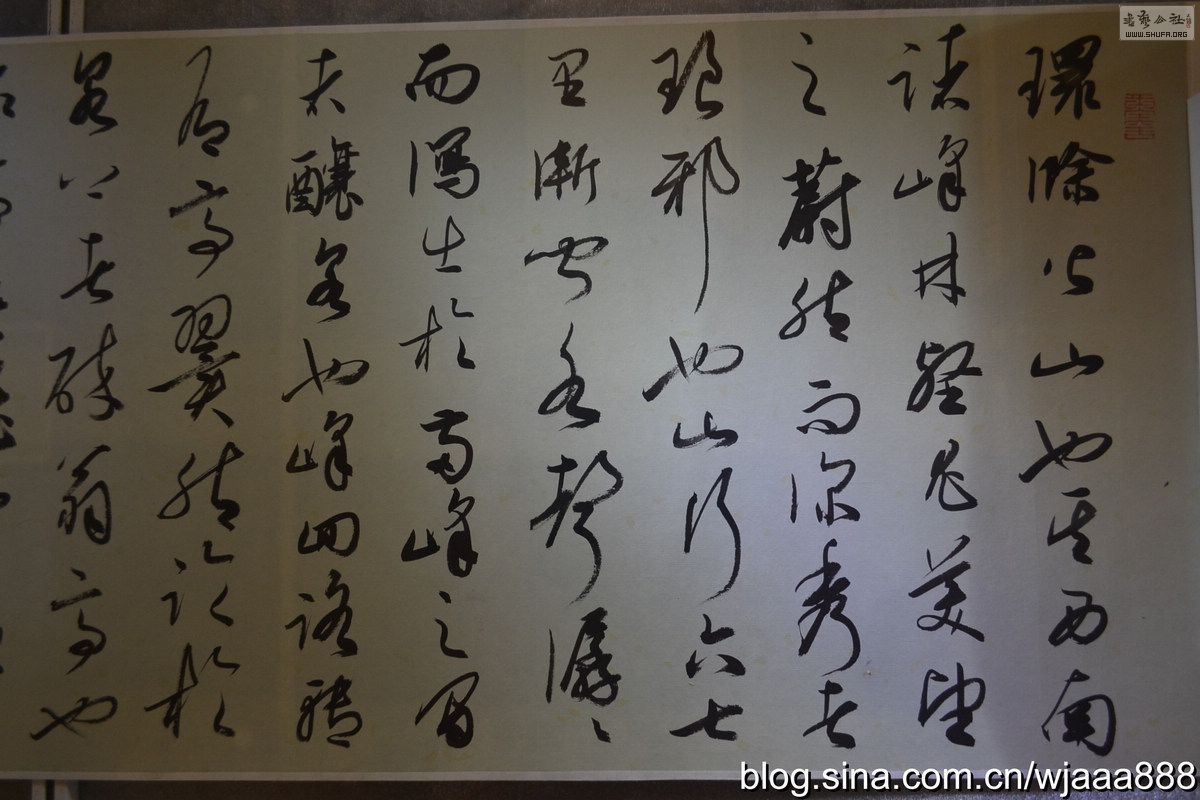 環滁皆山也其西南
諸峰林壑尤美望
之蔚然而深秀者
琅邪也山行六七
里漸聞水聲潺々
而瀉出於兩峰之間
者釀泉也峰回路轉
有亭翼然臨於
泉上者醉翁亭也
書藝公社
WWW.SHUFA.ORG
blog.sina.com.cn/wjaaa888